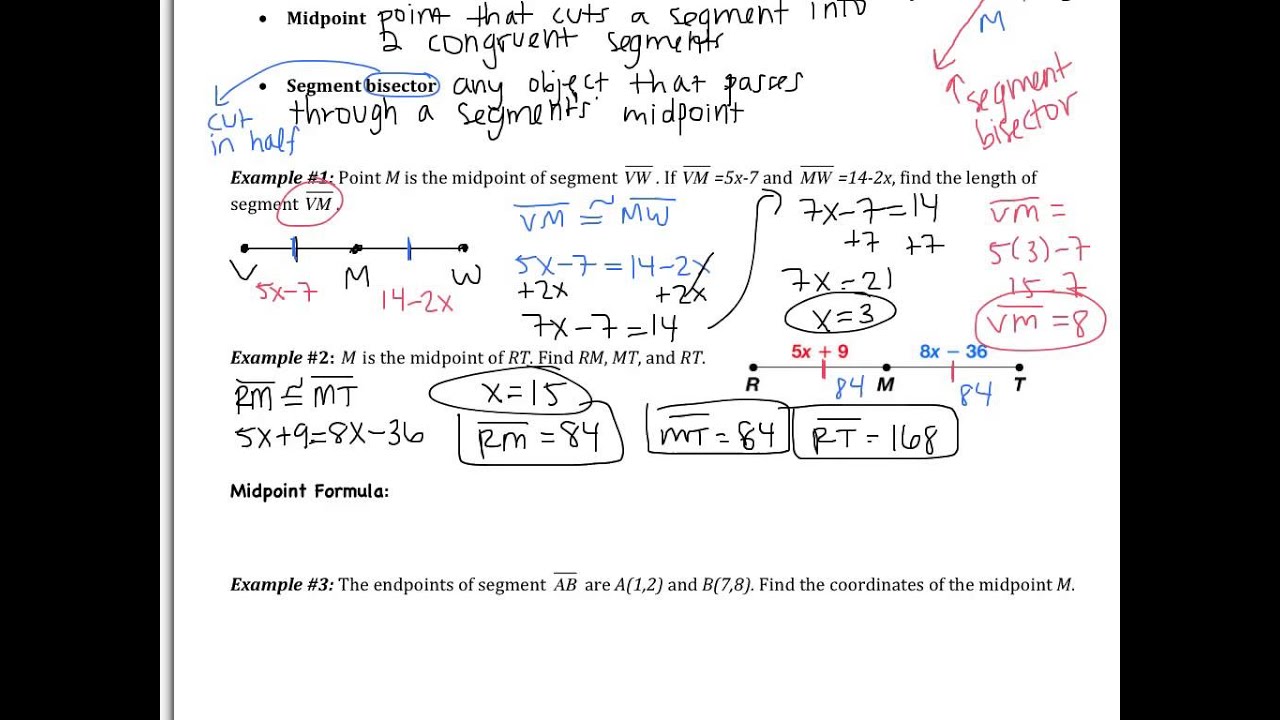 • Midpoint point that cuts a segment into
2 congruent segments
M
• Segment bisector any object that passes
through a segments' midpoint
cut
in half
segment
bisector
Example #1: Point M is the midpoint of segment VW. If VM =5x-7 and MW =14-2x, find the length of
segment VM.
V M W
5x-7 14-2x
VM ≅ MW
5x-7=14-2x
+2x +2x
7x-7=14
7x-7=14
+7 +7
7x=21
x=3
VM =
5(3)-7
15-7
VM =8
Example #2: M is the midpoint of RT. Find RM, MT, and RT.
5x + 9 8x − 36
R 84 M 84 T
RM ≅ MT
5x+9=8x-36
x=15
RM = 84
MT = 84
RT = 168
Midpoint Formula:
Example #3: The endpoints of segment AB are A(1,2) and B(7,8). Find the coordinates of the midpoint M.